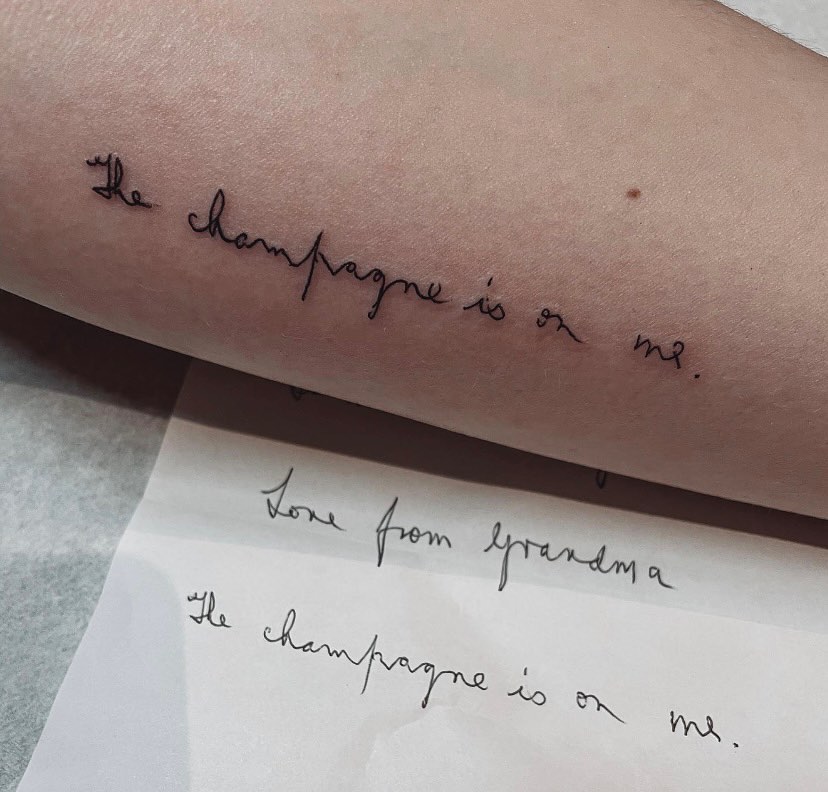 The champagne is on me.
Love from Grandma
The champagne is on me.